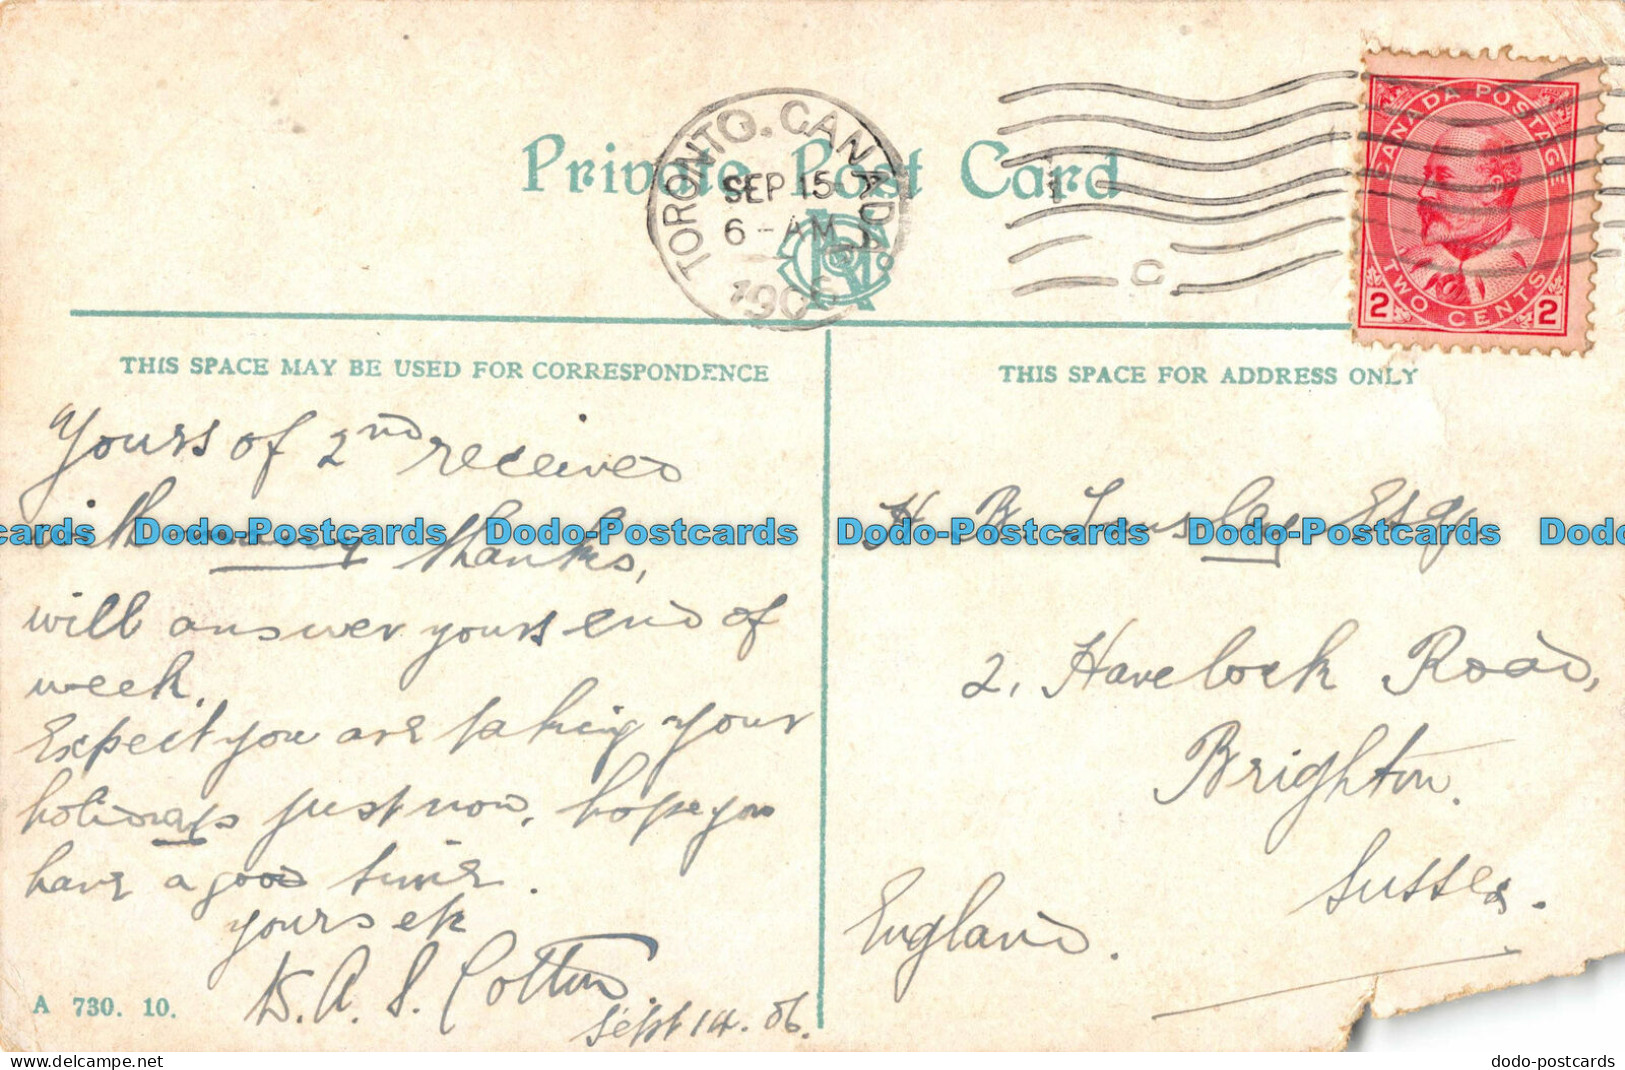 Private Post Card
TORONTO. CANADA
SEP 15
6 - AM
1906
C
CANADA POSTAGE
2 TWO CENTS 2
THIS SPACE MAY BE USED FOR CORRESPONDENCE
Yours of 2nd received
with many thanks,
will answer yours end of
week.
Expect you are taking your
holidays just now, hope you
have a good time.
yours etc
A. S. Cotton
Sept 14. 06.
A 730. 10.
THIS SPACE FOR ADDRESS ONLY
H B Esq
2, Havelock Road,
Brighton.
Sussex.
England.
Dodo-Postcards Dodo-Postcards Dodo-Postcards Dodo-Postcards
www.delcampe.net
dodo-postcards